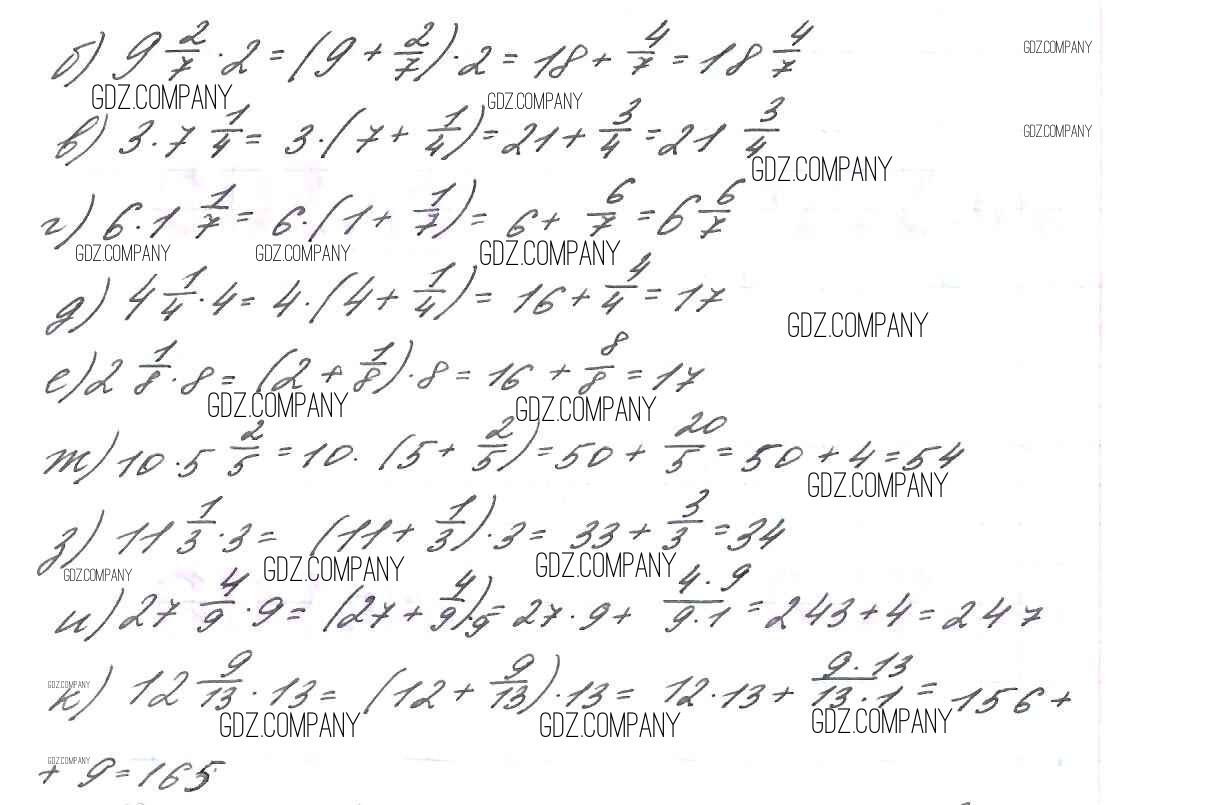 б) 9 2/7 · 2 = (9 + 2/7) · 2 = 18 + 4/7 = 18 4/7
GDZ.COMPANY
GDZ.COMPANY GDZ.COMPANY
в) 3 · 7 1/4 = 3 · (7 + 1/4) = 21 + 3/4 = 21 3/4
GDZ.COMPANY
GDZ.COMPANY
г) 6 · 1 1/7 = 6 · (1 + 1/7) = 6 + 6/7 = 6 6/7
GDZ.COMPANY GDZ.COMPANY GDZ.COMPANY
д) 4 1/4 · 4 = 4 · (4 + 1/4) = 16 + 4/4 = 17
GDZ.COMPANY
е) 2 1/8 · 8 = (2 + 1/8) · 8 = 16 + 8/8 = 17
GDZ.COMPANY GDZ.COMPANY
ж) 10 · 5 2/5 = 10 · (5 + 2/5) = 50 + 20/5 = 50 + 4 = 54
GDZ.COMPANY
з) 11 1/3 · 3 = (11 + 1/3) · 3 = 33 + 3/3 = 34
GDZ.COMPANY GDZ.COMPANY GDZ.COMPANY
и) 27 4/9 · 9 = (27 + 4/9) · 9 = 27 · 9 + 4 · 9/9 · 1 = 243 + 4 = 247
GDZ.COMPANY
к) 12 9/13 · 13 = (12 + 9/13) · 13 = 12 · 13 + 9 · 13/13 · 1 = 156 +
GDZ.COMPANY GDZ.COMPANY GDZ.COMPANY
GDZ.COMPANY
+ 9 = 165